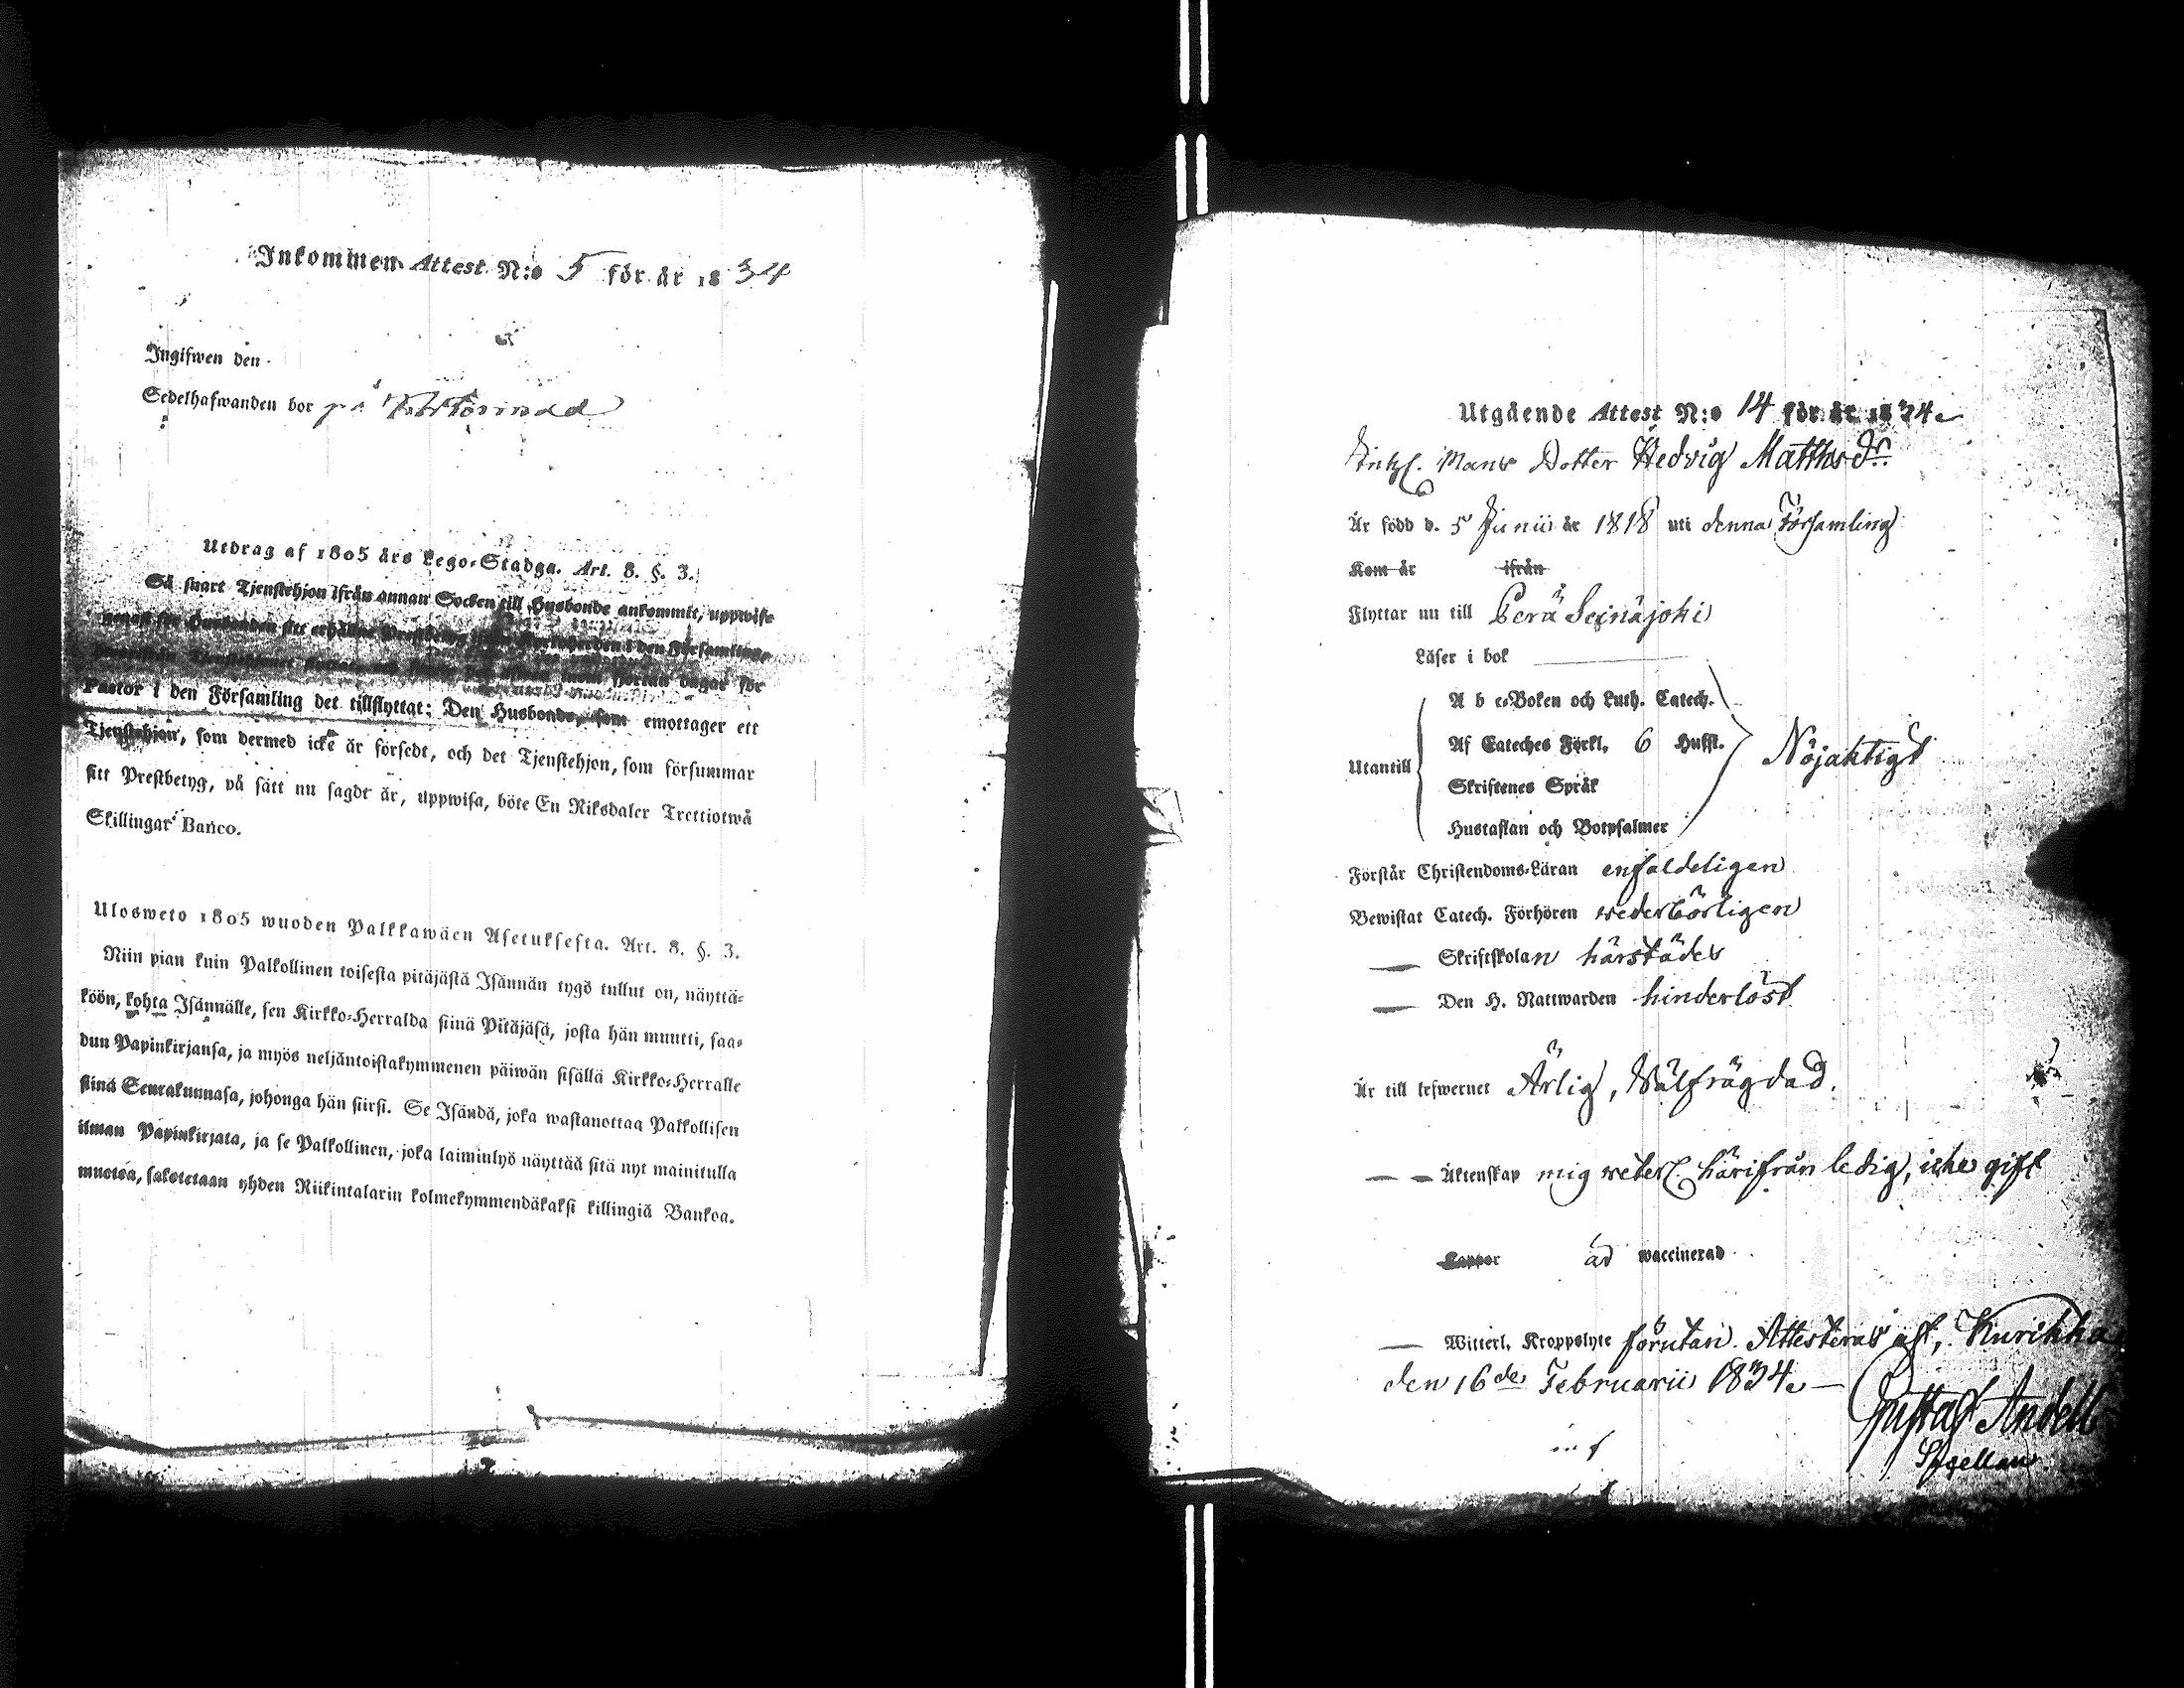 Inkommen Attest N:o 5 för år 1834
Ingifwen den
Sedelhafwanden bor på
Utdrag af 1805 års Lego-Stadga. Art. 8. §. 3.
Så snart Tjenstehjon ifrån annan Socken till Husbonde ankommit, uppwise
genast för Husbonden sitt erhållne Prestbetyg i den Församling,
Tjenstehjonet inom fjorton dagar för
Pastor i den Församling det tillflyttat: Den Husbonde, som emottager ett
Tjenstehjon, som dermed icke är försedt, och det Tjenstehjon, som försummar
sitt Prestbetyg, på sätt nu sagdt är, uppwisa, böte En Riksdaler Trettiotwå
Skillingar Banco.
Ulosweto 1805 wuoden Palkkawäen Asetuksesta. Art. 8. §. 3.
Niin pian kuin Palkollinen toisesta pitäjästä Isännän tygö tullut on, näyttä-
köön, kohta Isännälle, sen Kirkko-Herralda siinä Pitäjäsä, josta hän muutti, saa-
dun Papinkirjansa, ja myös neljäntoistakymmenen päiwän sisällä Kirkko-Herralle
siinä Seurakunnasa, johonga hän siirsi. Se Isändä, joka wastanottaa Palkollisen
ilman Papinkirjata, ja se Palkollinen, joka laiminlyö näyttää sitä nyt mainitulla
muotoa, sakotetaan yhden Riikintalarin kolmekymmendäkaksi killingiä Bankoa.
Utgående Attest N:o 14 för år 1834
Mans Dotter Hedvig Matthsdr.
Är född d. 5 Junii år 1818 uti denna Församling
Kom år ifrån
Flyttar nu till Perä Seinäjoki
Läser i bok
A b c-Boken och Luth. Catech.
Af Cateches Förkl. 6 Hufst.
Utantill Nöjaktigt
Skriftenes Språk
Hustaflan och Botpsalmer
Förstår Christendoms-Läran enfaldeligen
Bewistat Catech. Förhören wederbörligen
— Skriftskolan härstädes
— Den H. Nattwarden hinderlöst
Är till lefwernet Ärlig, Wälfrägdad.
— — Äktenskap mig weterl. härifrån ledig, icke gift
Koppor ad waccinerad
— Witterl. Kroppslyte förutan. Attesteras af, Kurikka
den 16de Februarii 1834.—
Gustaf Andell